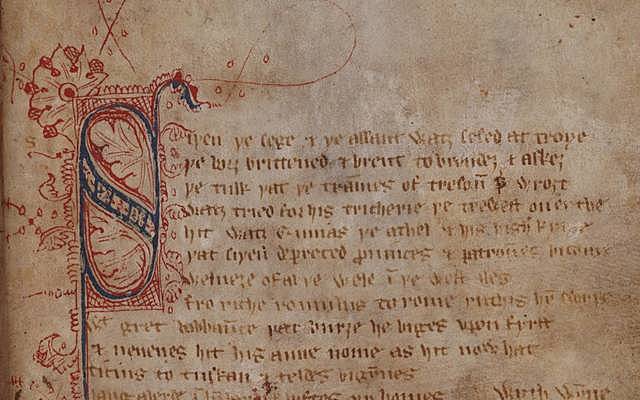 Siþen þe sege & þe assaut watz sesed at troye
þe borȝ brittened & brent to brondez & askez
þe tulk þat þe trāmes of tresoū þ̄ wroȝt
watz tried for his tricherie þe trewest on erthe
hit watz Ennias þe athel & his highe kynde
þat siþen depreced prouinces & patrounes bicome
welneȝe of al þe wele ī þe west iles
fro riche romulus to rome ricchis hȳ swyþe
gret bobbaūce þat burȝe he biges vpon fyrst
& neuenes hit his aune nome as hit now hat
ticius to tuskan & teldes bigȳnes
homes